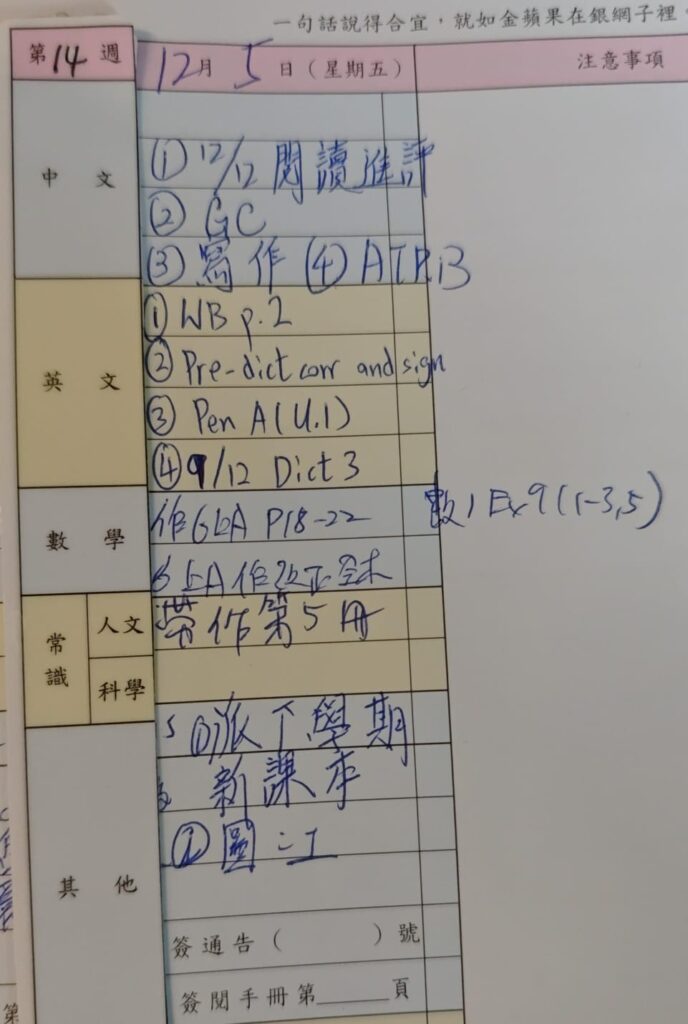 一句話說得合宜，就如金蘋果在銀網子裡。
第14週 12月5日（星期五） 注意事項
中文
① 12/12 閱讀進評
② GC
③ 寫作 ④ ATRB
英文
① WB p.2
② Pre-dict corr and sign
③ Pen A (U.1)
④ 9/12 Dict 3
數學
作GLA P18-22 數1 Ex9(1-3,5)
作改正
常識 人文 科學
作第5冊
其他
派下學期
新課本
② 圖:工
簽通告（ ）號
簽閱手冊第____頁
第